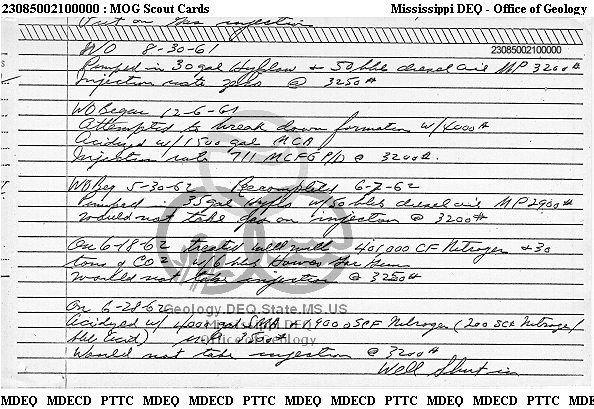 23085002100000 : MOG Scout Cards Mississippi DEQ - Office of Geology
Put on Gas injection
W/O 8-30-61 23085002100000
Pumped in 30 gal Hyflow + 50 bbls diesel oil MP 3200#
Injection rate @ 3250#
WO Began 12-6-61
Attempted to break down formation w/4000#
Acidized w/1500 gal MCA
Injection rate 711 MCFGP/D @ 3200#.
WO Beg 5-30-62 Recompleted 6-7-62
Pumped in 35 gal Hyflo w/50 bbls diesel oil MP 2900#
Would not take gas on injection @ 3200#
On 6-18-62 treated well with 401,000 CF Nitrogen + 30
tons of CO2 w/6 bbls Howco
Would not take injection @ 3250#
On 6-28-62
Geology.DEQ.State.MS.US
Acidized w/ 4000 gal 900 SCF Nitrogen (200 SCF Nitrogen/
Office of Geology
Bbl Acid) 3500#
Would not take injection @ 3200#
Well Shut in
MDEQ MDECD PTTC MDEQ MDECD PTTC MDEQ MDECD PTTC MDE